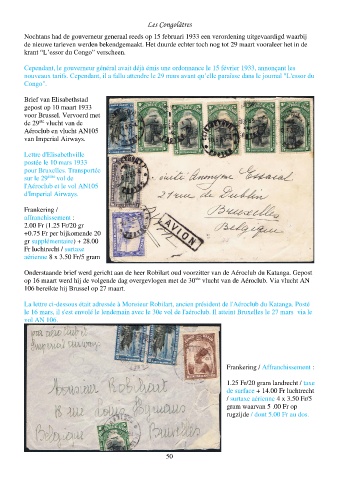 Les Congolâtres
Nochtans had de gouverneur generaal reeds op 15 februari 1933 een verordening uitgevaardigd waarbij
de nieuwe tarieven werden bekendgemaakt. Het duurde echter toch nog tot 29 maart vooraleer het in de
krant "L'essor du Congo" verscheen.
Cependant, le gouverneur général avait déjà émis une ordonnance le 15 février 1933, annonçant les
nouveaux tarifs. Cependant, il a fallu attendre le 29 mars avant qu'elle paraisse dans le journal "L'essor du
Congo".
Brief van Elisabethstad
gepost op 10 maart 1933
voor Brussel. Vervoerd met
de 29ste vlucht van de
Aéroclub en vlucht AN105
van Imperial Airways.
Lettre d'Elisabethville
postée le 10 mars 1933
pour Bruxelles. Transportée
sur le 29ème vol de
l'Aéroclub et le vol AN105
d'Imperial Airways.
Frankering /
affranchissement :
2.00 Fr (1.25 Fr/20 gr
+0.75 Fr per bijkomende 20
gr supplémentaire) + 28.00
Fr luchtrecht / surtaxe
aérienne 8 x 3.50 Fr/5 gram
Société Anonyme Essaral
21 rue de Dublin
Bruxelles
Belgique
AVION
Onderstaande brief werd gericht aan de heer Robikart oud voorzitter van de Aéroclub du Katanga. Gepost
op 16 maart werd hij de volgende dag overgevlogen met de 30ste vlucht van de Aéroclub. Via vlucht AN
106 bereikte hij Brussel op 27 maart.
La lettre ci-dessous était adressée à Monsieur Robilart, ancien président de l'Aéroclub du Katanga. Posté
le 16 mars, il s'est envolé le lendemain avec le 30e vol de l'aéroclub. Il atteint Bruxelles le 27 mars via le
vol AN 106
Imperial airways
Monsieur Robikart
8 rue
Belgique Bruxelles
Frankering / Affranchissement :
1.25 Fr/20 grams landrecht / taxe
de surface + 14.00 Fr luchtrecht
/ surtaxe aérienne 4 x 3.50 Fr/5
gram waarvan 5 .00 Fr op
rugzijde / dont 5.00 Fr au dos.
50